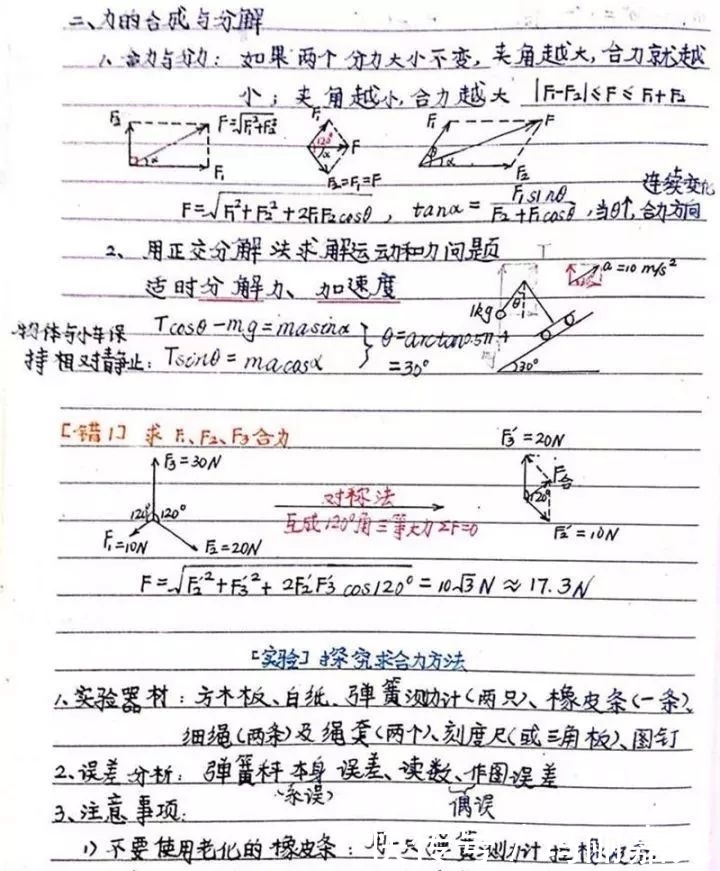 二、力的合成与分解
1、合力与分力：如果两个分力大小不变，夹角越大，合力就越
小；夹角越小，合力越大 |F₁-F₂|≤F≤F₁+F₂
F₂ F=√F₁²+F₂² α F₁
F₁ 120° α F F₂=F₁=F
F₁ F θ α F₂
F=√F₁²+F₂²+2F₁F₂cosθ，tanα=F₁sinθ/F₂+F₁cosθ，当θ↑，合力方向
连续变化
2、用正交分解法求解运动和力问题
适时分解力、加速度
T a=10 m/s²
1kg θ 30°
物体与小车保
持相对静止：
Tcosθ-mg=masinα
Tsinθ=macosα
θ=arctan0.577
=30°
[错1] 求F₁、F₂、F₃合力
F₃=30N 120° 120° F₁=10N F₂=20N
对称法
互成120°角三等大力ΣF=0
F₃'=20N F合 120° F₂'=10N
F=√F₂'²+F₃'²+2F₂'F₃'cos120°=10√3N≈17.3N
[实验] 探究求合力方法
1、实验器材：方木板、白纸、弹簧测力计(两只)、橡皮条(一条)、
细绳(两条)及绳套(两个)、刻度尺(或三角板)、图钉
2、误差分析：弹簧秤本身误差、读数、作图误差
(系误) 偶误
3、注意事项：
1) 不要使用老化的橡皮条：